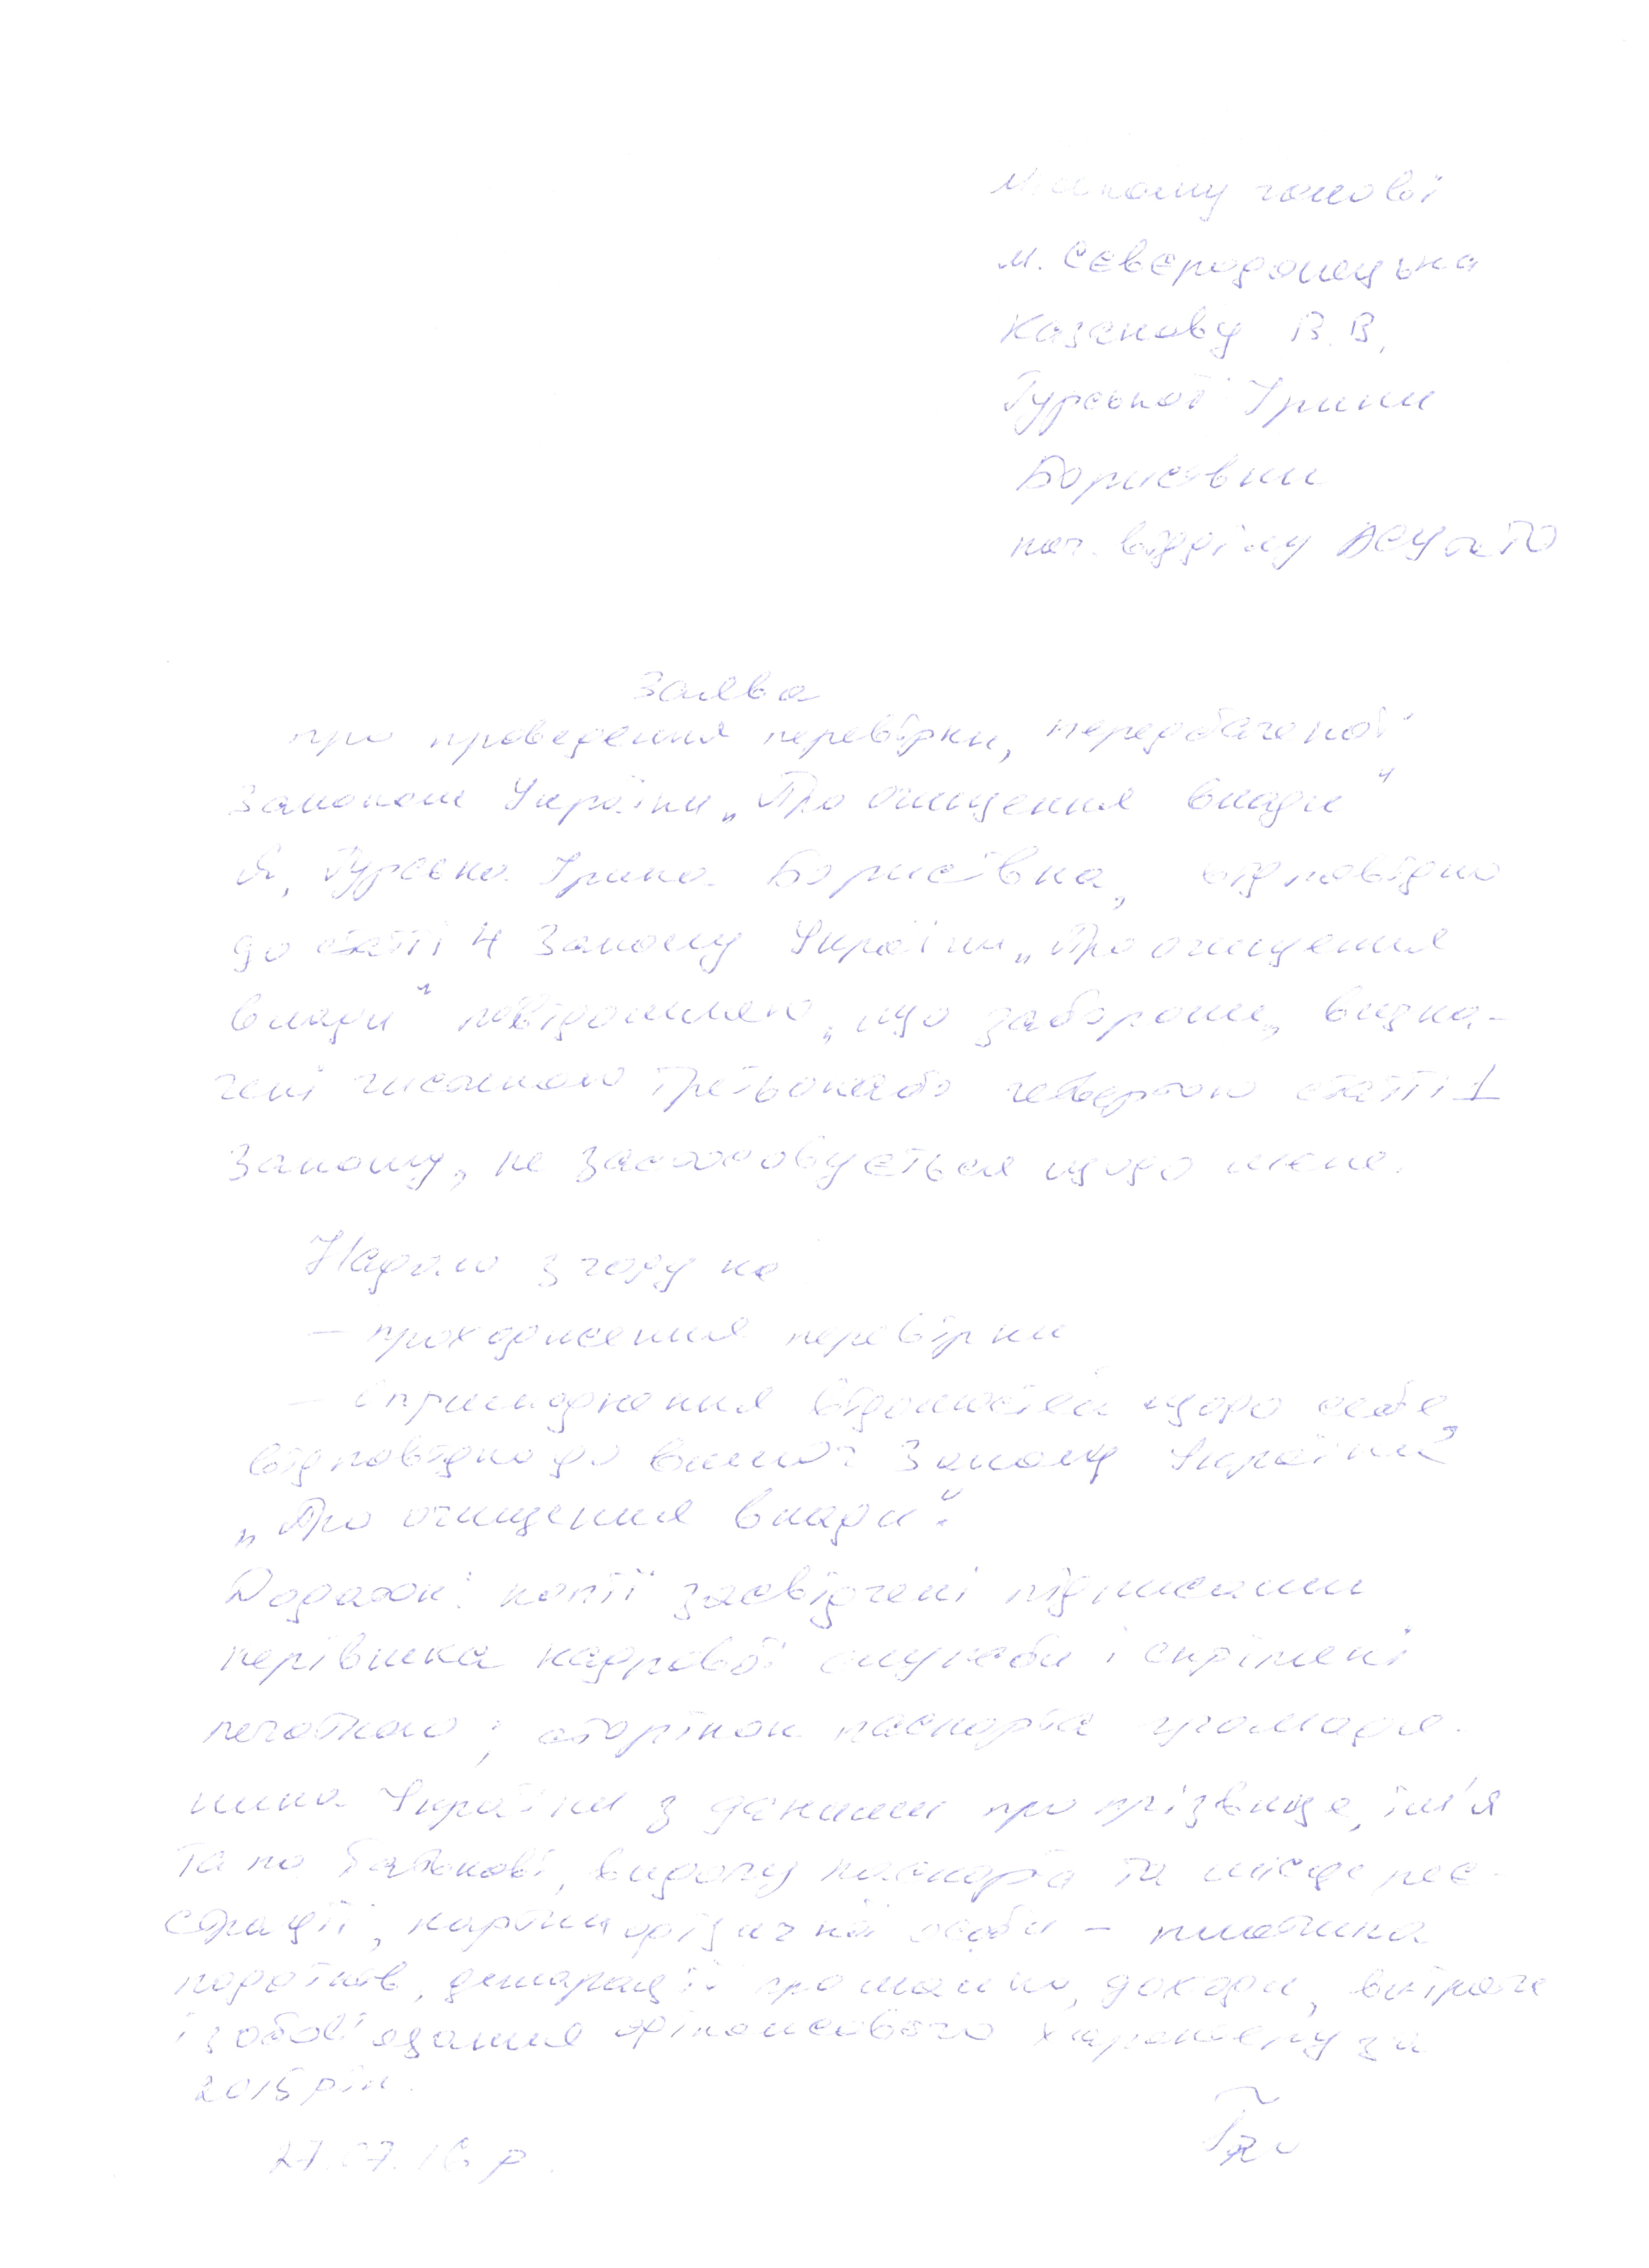 Міському голові
м. Сєвєродонецька
Казакову В.В.
Гурської Ірини
Борисівни
нач. відділу АСУ та ТО
Заява
про проведення перевірки, передбаченої
Законом України „Про очищення влади"
Я, Гурська Ірина Борисівна, відповідно
до статті 4 Закону України „Про очищення
влади" повідомляю, що заборони, визна-
чені частиною третьою або четвертою статті 1
Закону, не застосовується щодо мене.
Надаю згоду на
— проходження перевірки
— оприлюднення відомостей щодо себе
відповідно до вимог Закону України
„Про очищення влади".
Додаток: копії засвідчені підписами
керівника кадрової служби і скріплені
печаткою; сторінок паспорта громадя-
нина України з даними про прізвище, ім'я
та по батькові, видачу паспорта та місце реє-
страції, картки фізичної особи – платника
податків, декларації про майно, доходи, витрати
і зобов'язання фінансового характеру за
2015 рік.
27.07.16 р.